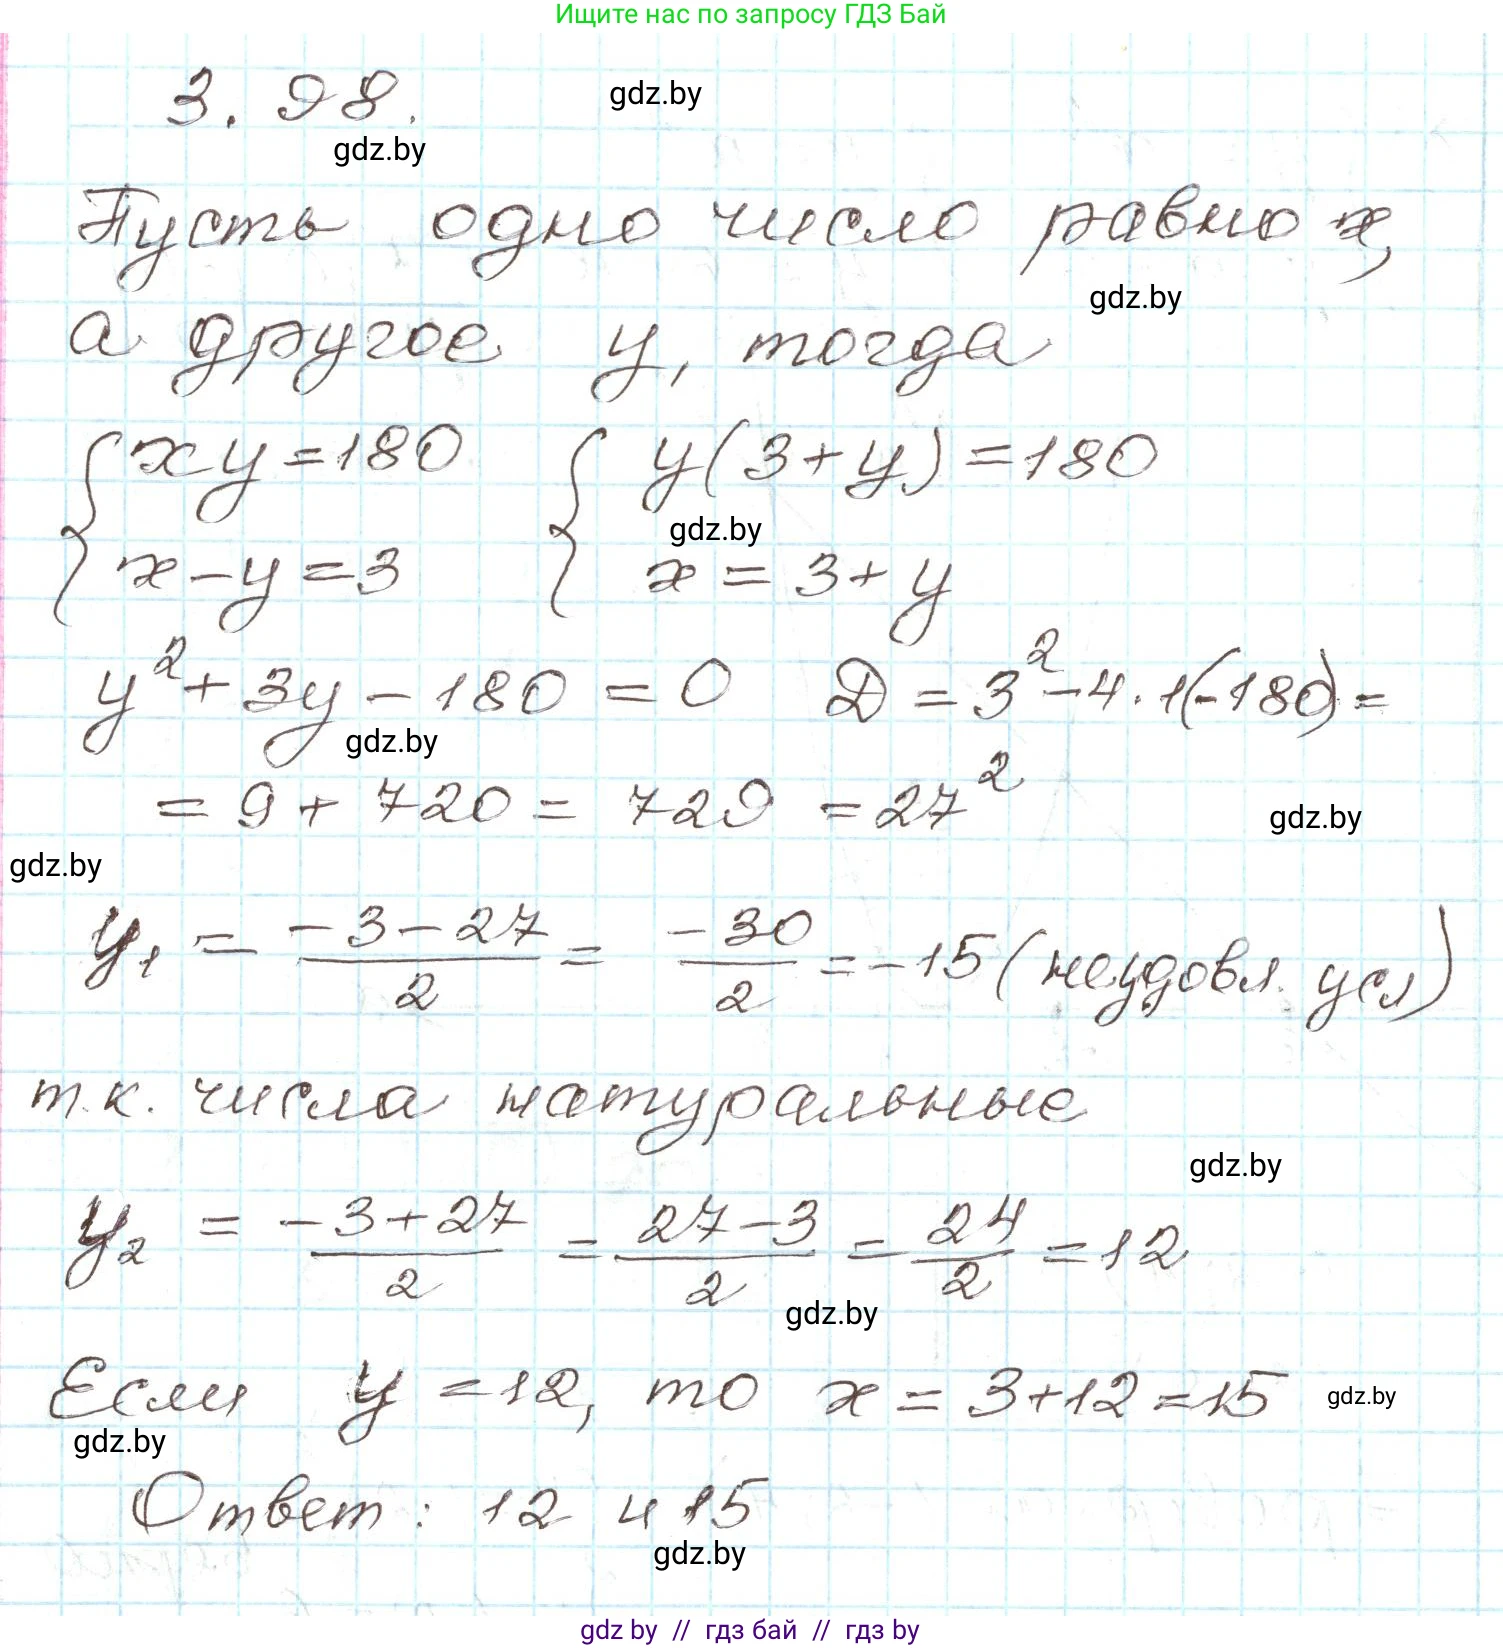 Ищите нас по запросу ГДЗ Бай
3.98.
gdz.by
gdz.by
Пусть одно число равно x,
gdz.by
а другое y, тогда
{ xy = 180 { y(3+y) = 180
gdz.by
x - y = 3 x = 3 + y
y² + 3y - 180 = 0 D = 3² - 4 · 1(-180) =
gdz.by
= 9 + 720 = 729 = 27²
gdz.by
gdz.by
y₁ = (-3-27)/2 = -30/2 = -15 (неудовл. усл)
т.к. числа натуральные
gdz.by
y₂ = (-3+27)/2 = (27-3)/2 = 24/2 = 12
gdz.by
Если y = 12, то x = 3 + 12 = 15
gdz.by
gdz.by
Ответ: 12 и 15
gdz.by
gdz by // гдз бай // гдз by